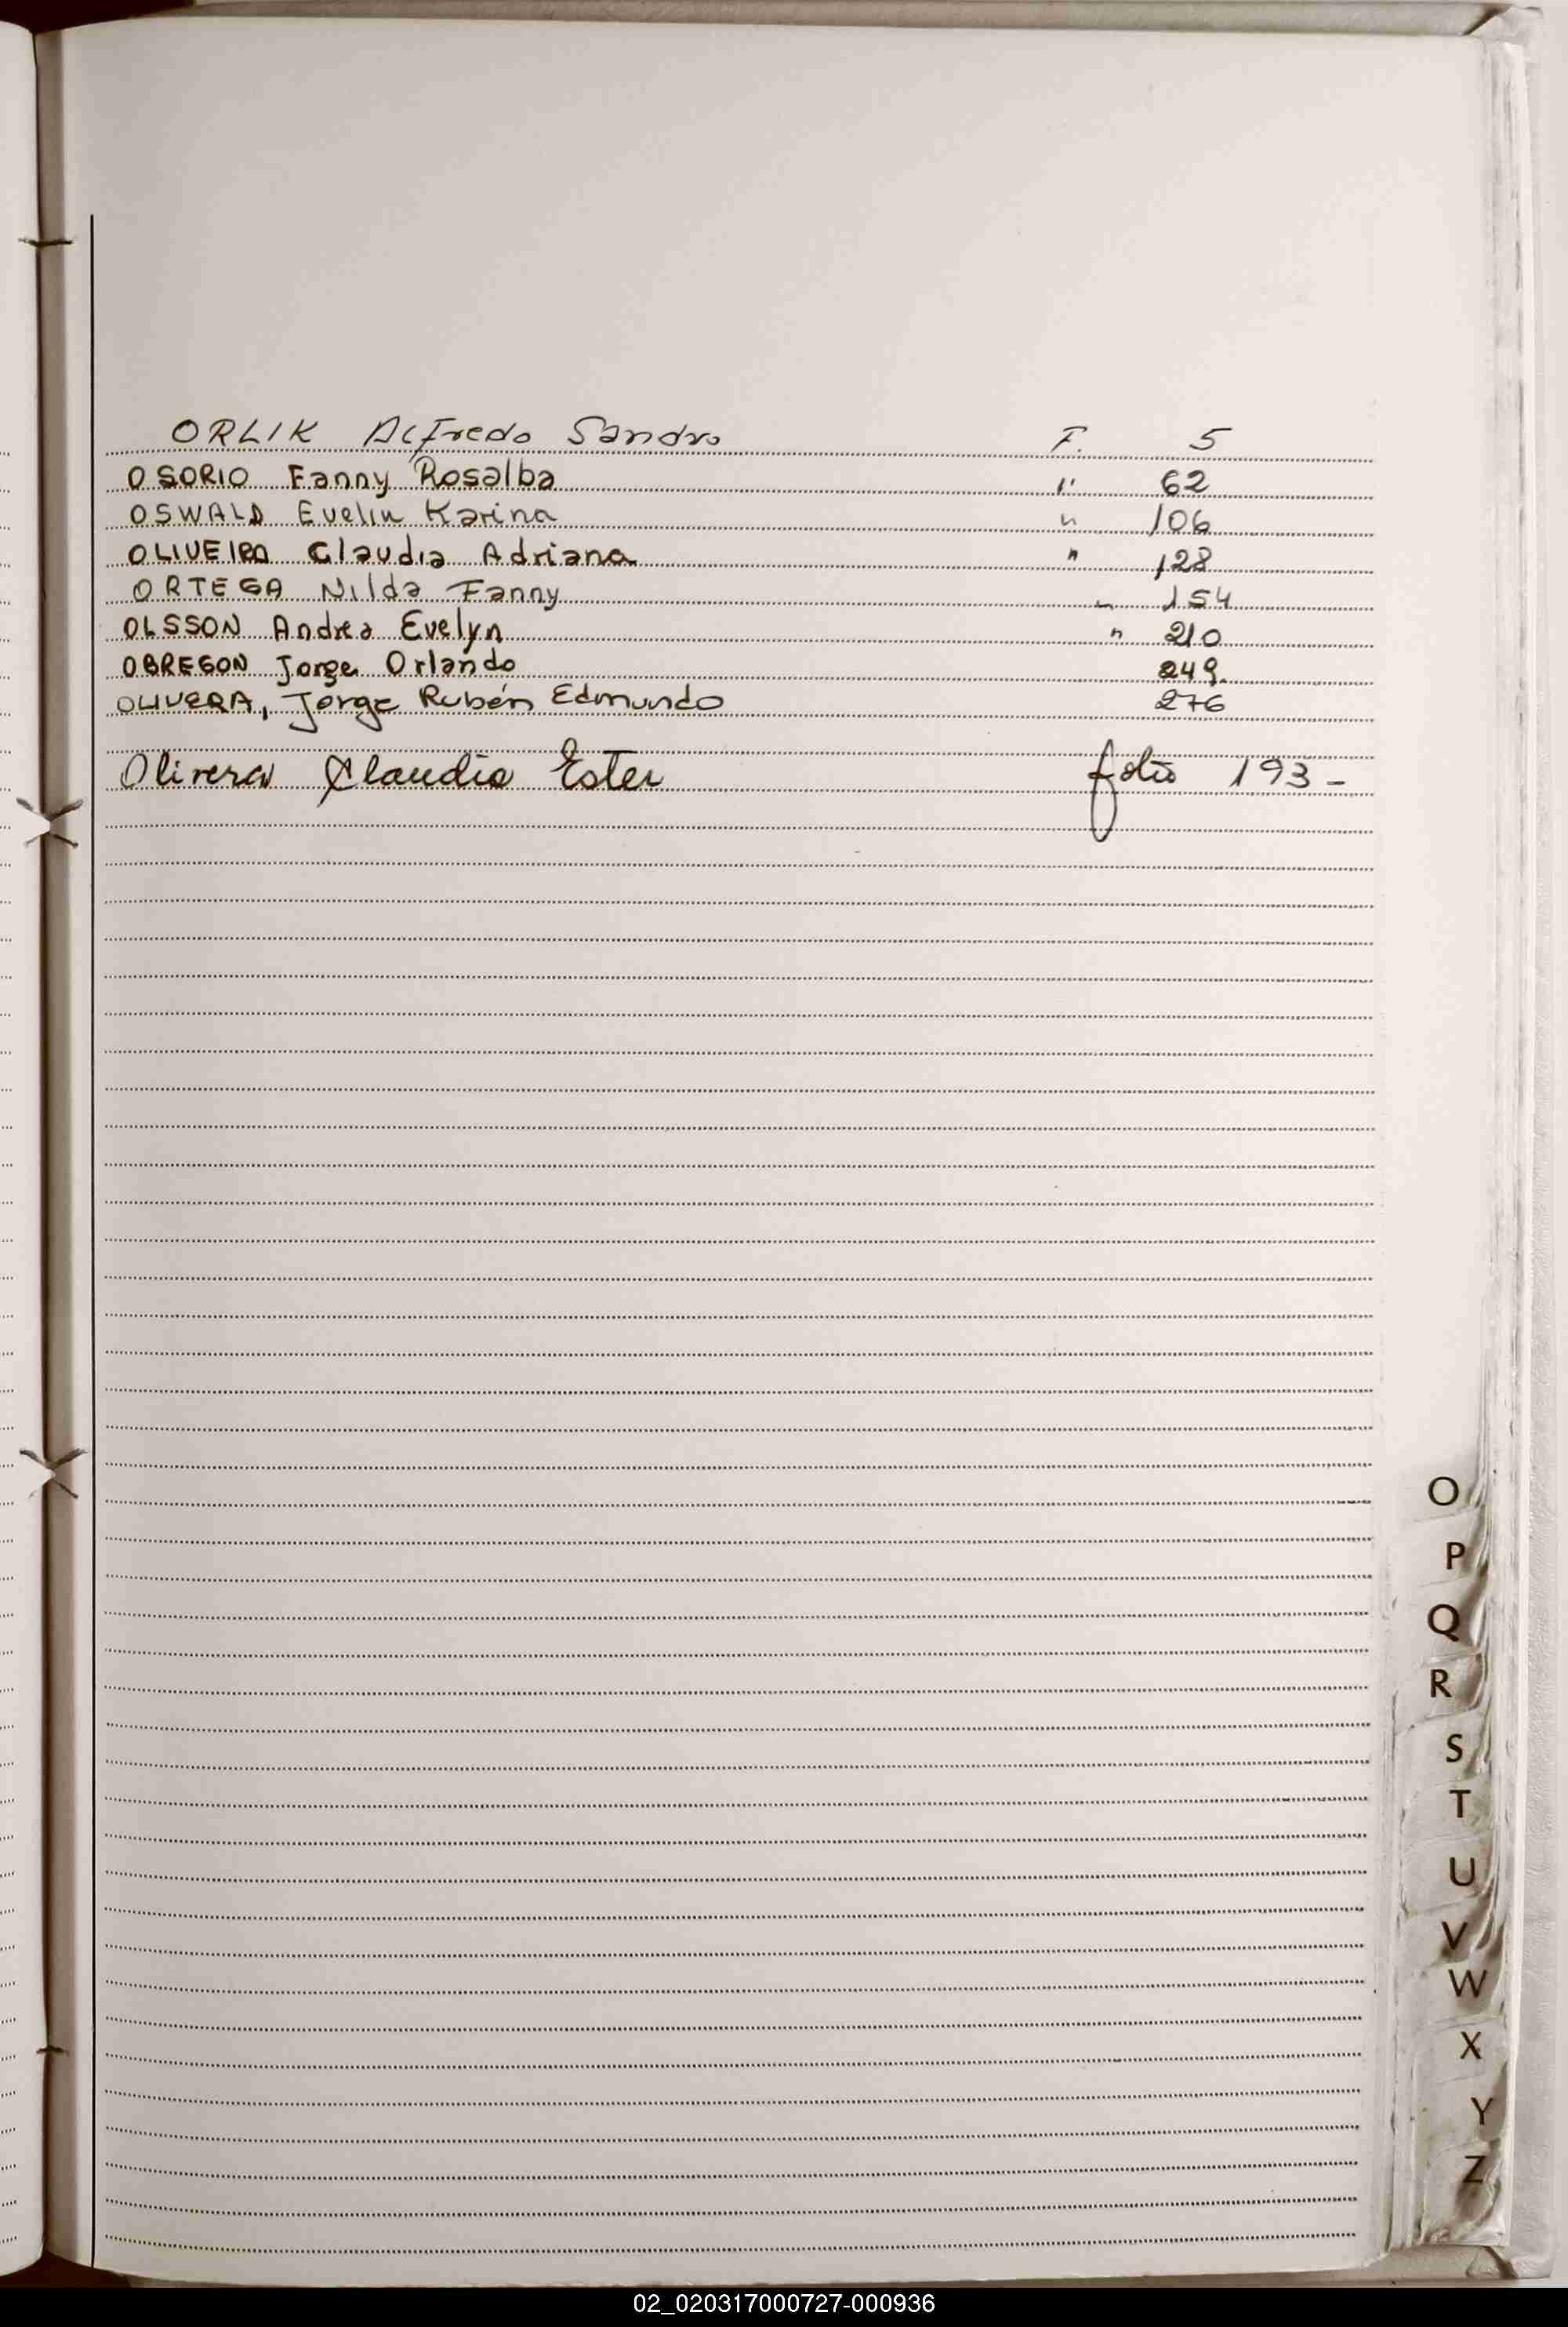 ORLIK Alfredo Sandro F. 5
OSORIO Fanny Rosalba " 62
OSWALD Evelin Karina " 106
OLIVEIRA Claudia Adriana " 128
ORTEGA Nilda Fanny " 154
OLSSON Andrea Evelyn " 210
OBREGON Jorge Orlando 249.
OLIVERA, Jorge Rubén Edmundo 276
Olivera Claudia Ester folio 193 -
O
P
Q
R
S
T
U
V
W
X
Y
Z
02_020317000727-000936